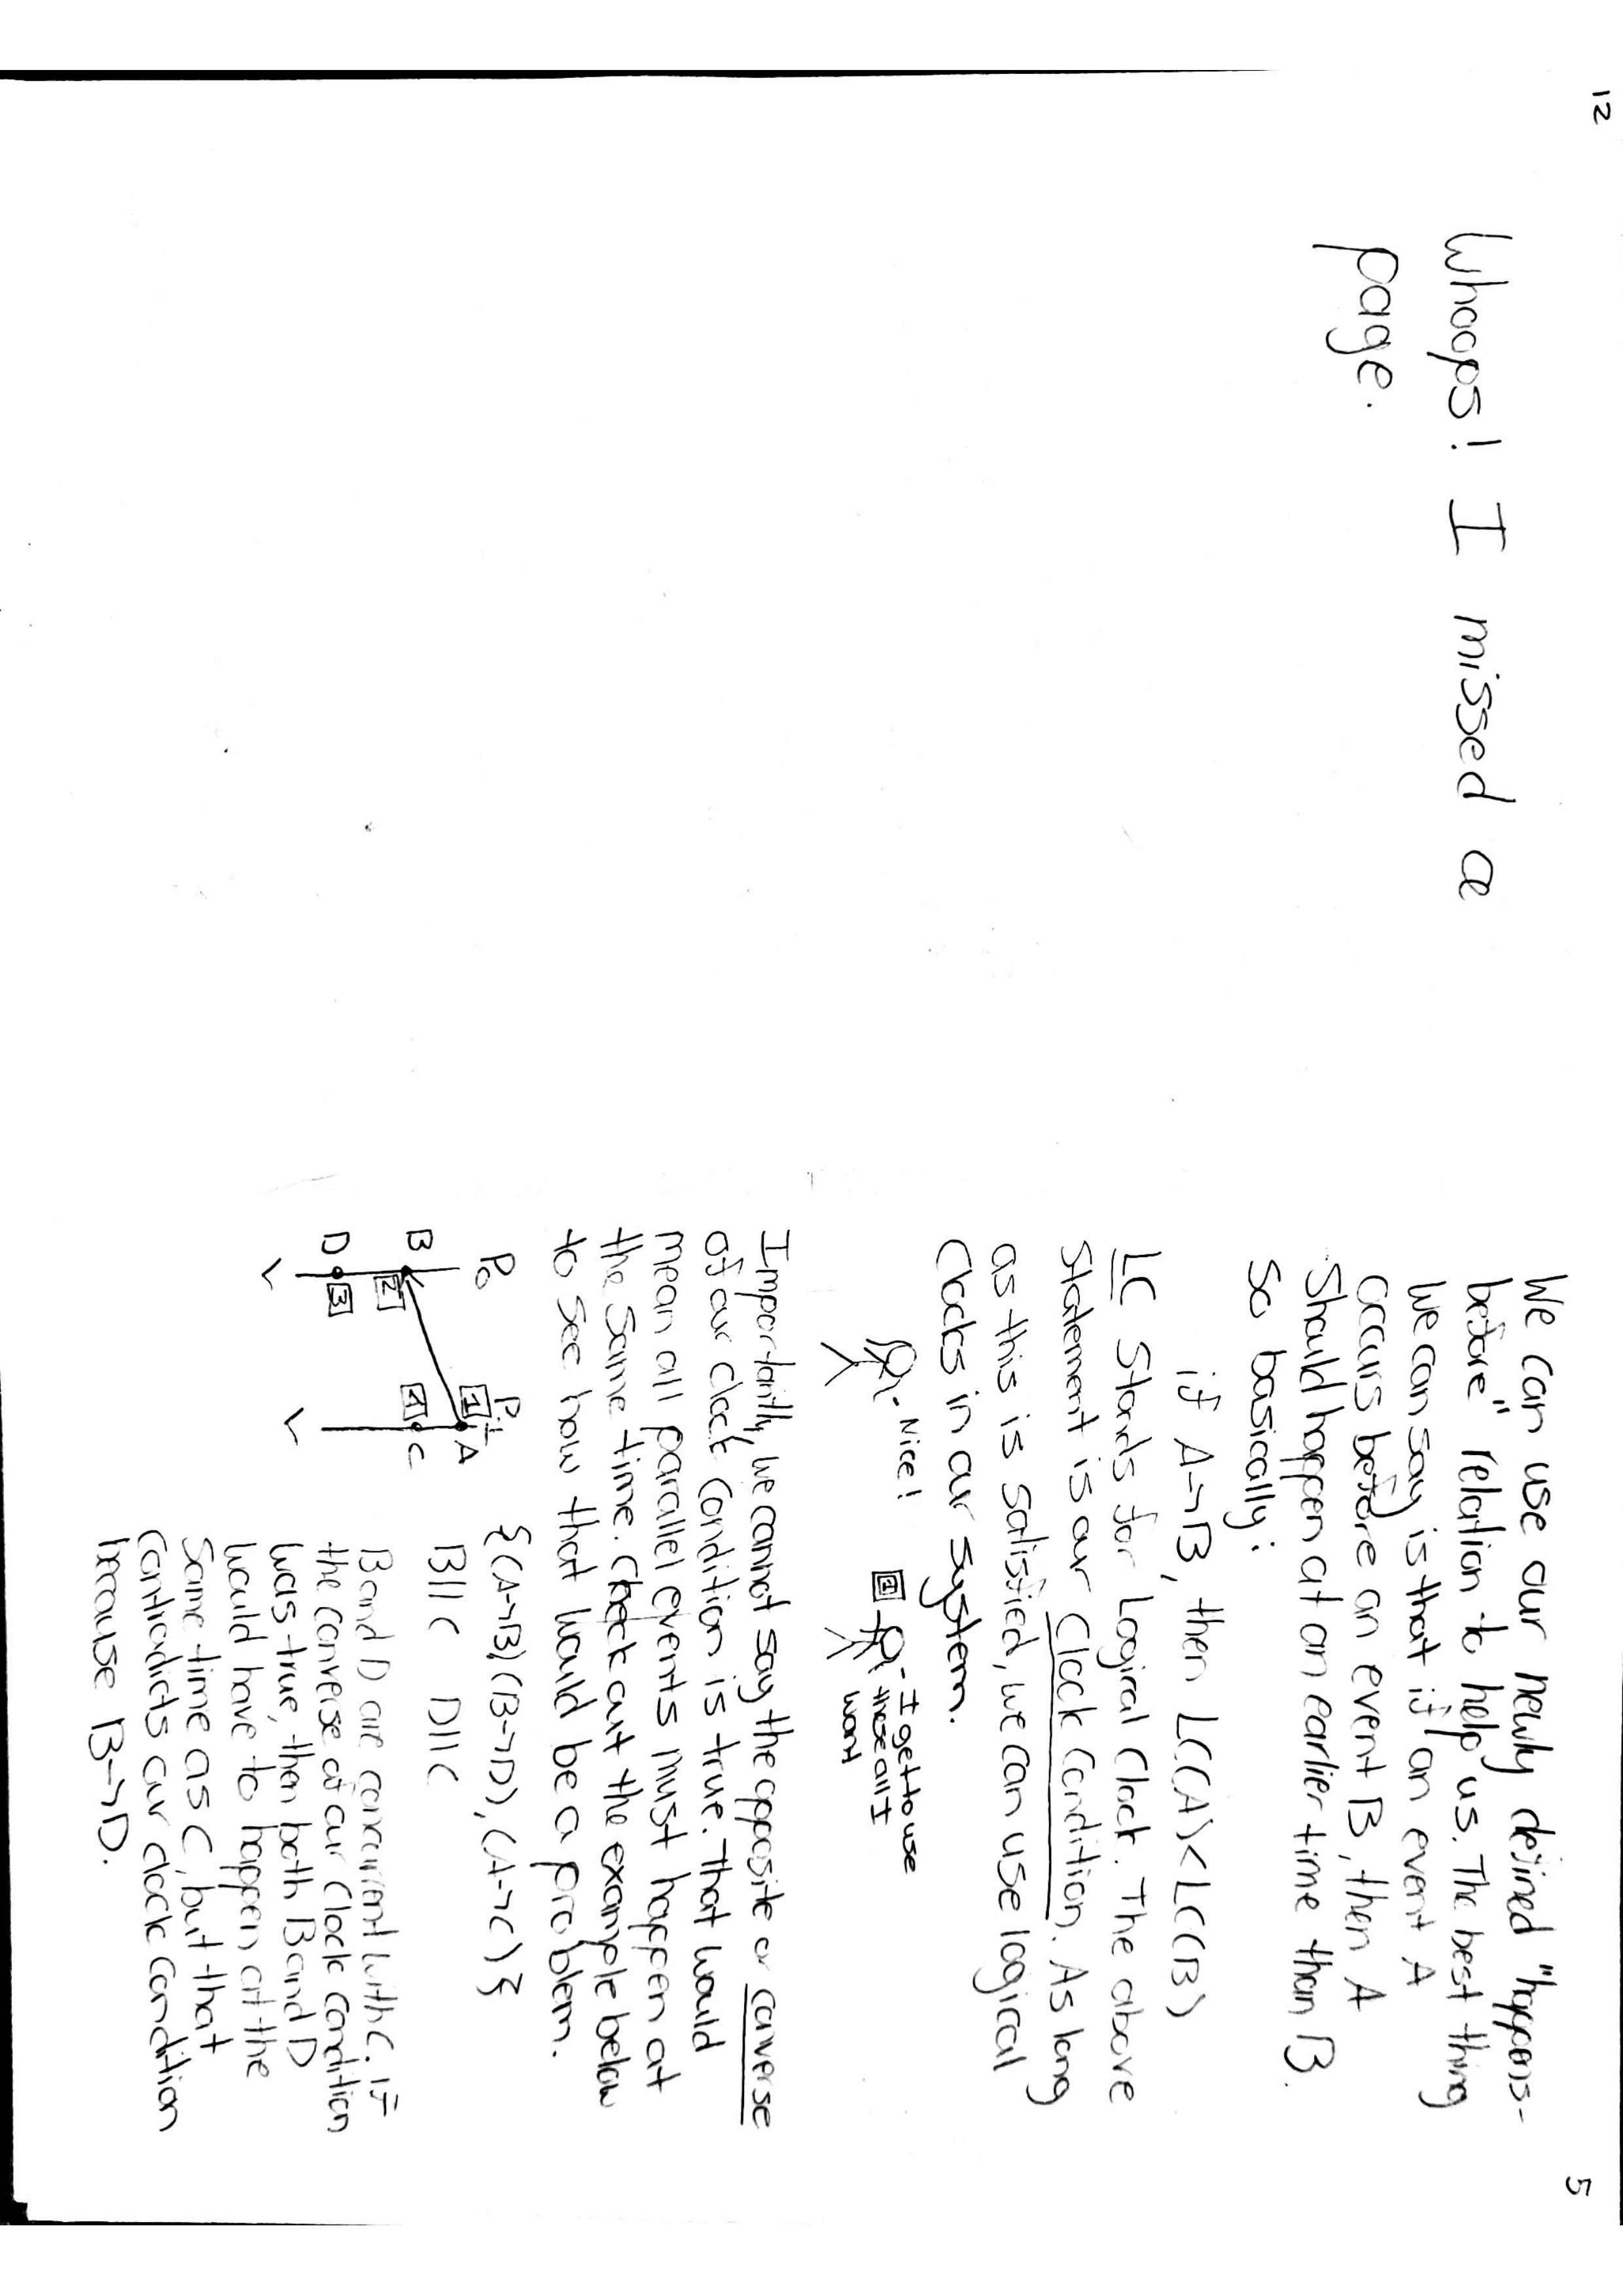 12
Whoops! I missed a
page.
5
We can use our newly defined "happens-
before" relation to help us. The best thing
we can say is that if an event A
occurs before an event B, then A
should happen at an earlier time than B.
So basically:
if A→B, then LC(A) < LC(B)
LC stands for Logical Clock. The above
statement is our Clock Condition. As long
as this is satisfied, we can use logical
clocks in our system.
- Nice!
1
- I get to use
these all I
want
Importantly, we cannot say the opposite or converse
of our clock condition is true. That would
mean all parallel events must happen at
the same time. Check out the example below
to see how that would be a problem.
P0
P1
1
A
B
2
C
D
3
{(A→B)(B→D),(A→C)}
B||C D||C
B and D are concurrent with C. if
the converse of our clock condition
was true, then both B and D
would have to happen at the
same time as C, but that
contradicts our clock condition
because B→D.